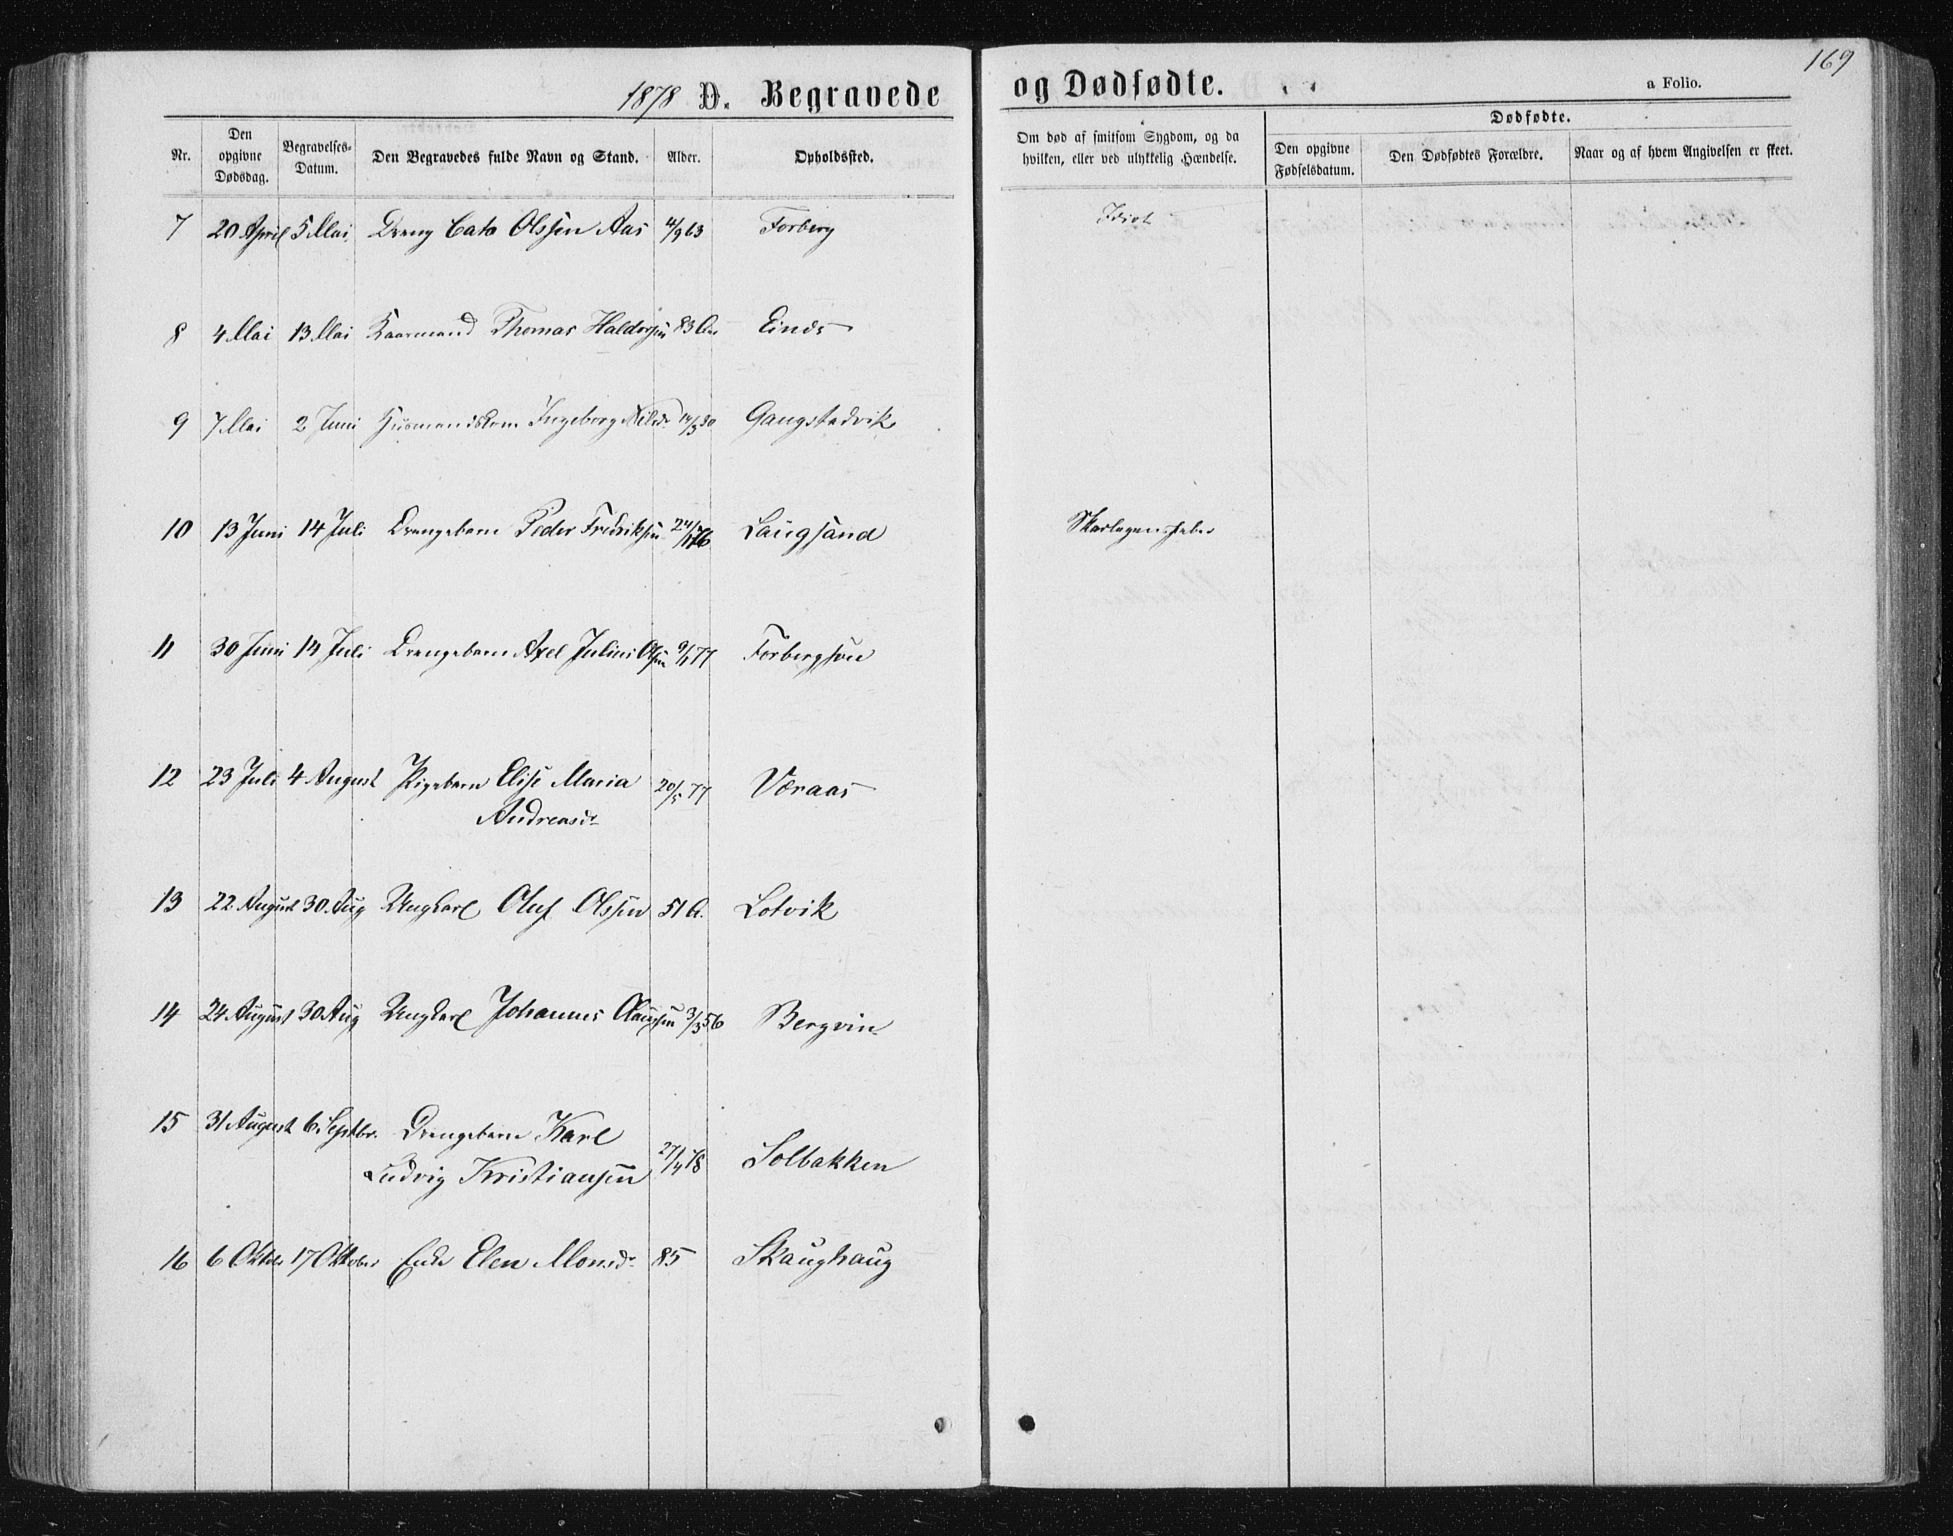 169
1878 D. Begravede og Dødfødte. a Folio.
Nr. Den opgivne Dødsdag. Begravelses-Datum. Den Begravedes fulde Navn og Stand. Alder. Opholdssted. Om død af smitsom Sygdom, og da hvilken, eller ved ulykkelig Hændelse. Dødfødte. Den opgivne Fødselsdatum. Den Dødfødtes Forældre. Naar og af hvem Angivelsen er skeet.
7 20 April 5 Mai Dreng Cato Olssen Aas 4/9 63 Forberg Idiot
8 4 Mai 13 Mai Kaarmand Thomas Haldorsen 83 Aar Einds
9 7 Mai 2 Juni Husmandskone Ingeborg Nilsd. 14/3 30 Gangstadvik
10 13 Juni 14 Juli Drengebarn Peder Fredriksen 24/1 76 Langsand Skarlagensfeber
11 30 Juni 14 Juli Drengebarn Axel Julius Olsen 9/1 77 Forbergson
12 23 Juli 4 August Pigebarn Elise Maria 20/5 77 Væraas
Andreasdr
13 22 August 30. Aug Ungkarl Oluf Olssen 51 A. Lotvik
14 24 August 30 Aug Ungkarl Johannes Olaussen 3/3 56 Bergvin
15 31 August 6. Septbr. Drengebarn Karl
Ludvig Kristiansen 27/4 78 Solbakken
16 6 Oktober 17 Oktober Enke Elen Monsdr 85 Skaughaug